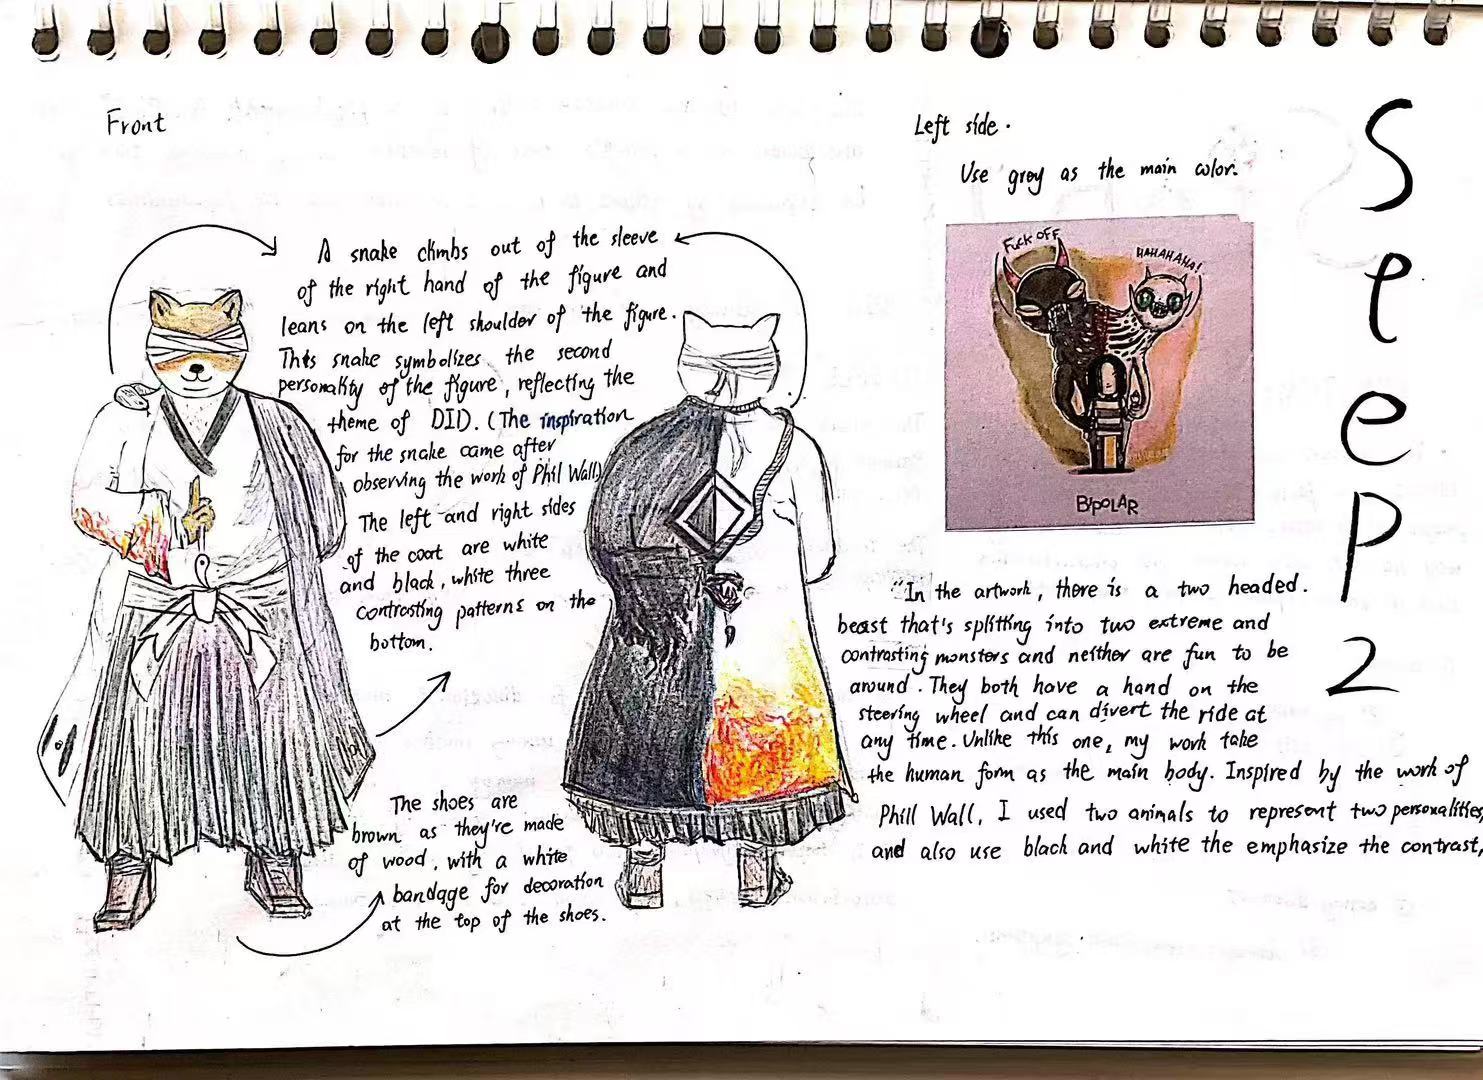 Front
A snake climbs out of the sleeve
of the right hand of the figure and
leans on the left shoulder of the figure.
This snake symbolizes the second
personality of the figure, reflecting the
theme of DID. (The inspiration
for the snake came after
observing the work of Phil Wall)
The left and right sides
of the coat are white
and black, white three
contrasting patterns on the
bottom.
The shoes are
brown as they're made
of wood, with a white
bandage for decoration
at the top of the shoes.
Left side.
Use grey as the main color.
FUCK OFF
HAHAHAHA!
BIPOLAR
"In the artwork, there is a two headed.
beast that's splitting into two extreme and
contrasting monsters and neither are fun to be
around. They both have a hand on the
steering wheel and can divert the ride at
any time. Unlike this one, my work take
the human form as the main body. Inspired by the work of
Phill Wall, I used two animals to represent two personalities,
and also use black and white the emphasize the contrast,
SteP 2